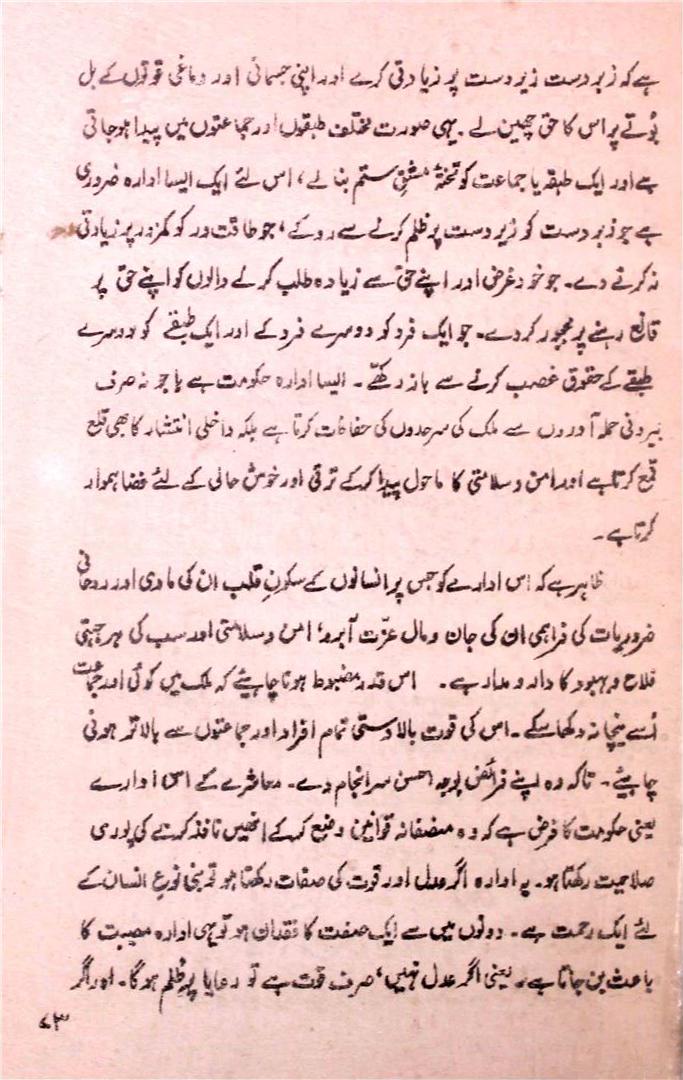 ہے کہ زبردست زیردست پر زیادتی کرے اور اپنی جسمانی اور دماغی قوتوں کے بل
بُوتے پر اس کا حق چھین لے۔ یہی صورت مختلف طبقوں اور جماعتوں میں پیدا ہو جاتی
ہے اور ایک طبقہ یا جماعت کو تختۂ مشقِ ستم بنا لے، اس لئے ایک ایسا ادارہ ضروری
ہے جو زبردست کو زیردست پر ظلم کرنے سے روکے، جو طاقت ور کو کمزور پر زیادتی
نہ کرنے دے۔ جو خود غرض اور اپنے حق سے زیادہ طلب کرنے والوں کو اپنے حق پر
قانع رہنے پر مجبور کر دے۔ جو ایک فرد کو دوسرے فرد کے اور ایک طبقے کو دوسرے
طبقے کے حقوق غصب کرنے سے باز رکھے۔ ایسا ادارہ حکومت ہے جو نہ صرف
بیرونی حملہ آوروں سے ملک کی سرحدوں کی حفاظت کرتا ہے بلکہ داخلی انتشار کا بھی قلع
قمع کرتا ہے اور امن و سلامتی کا ماحول پیدا کر کے ترقی اور خوش حالی کے لئے فضا ہموار
کرتا ہے۔
ظاہر ہے کہ اس ادارے کو جس پر انسانوں کے سکونِ قلب ان کی مادی اور روحانی
ضروریات کی فراہمی ان کی جان و مال عزّت آبرو، امن و سلامتی اور سب کی ہمہ جہتی
فلاح و بہبود کا دار و مدار ہے۔ اس قدر مضبوط ہونا چاہیئے کہ ملک میں کوئی اور جماعت
اُسے نیچا نہ دکھا سکے۔ اس کی قوت بالادستی تمام افراد اور جماعتوں سے بالاتر ہونی
چاہیئے۔ تاکہ وہ اپنے فرائض بوجہ احسن سرانجام دے۔ معاشرے کے اس ادارے
یعنی حکومت کا فرض ہے کہ وہ منصفانہ قوانین وضع کر کے انھیں نافذ کرنے کی پوری
صلاحیت رکھتا ہو۔ یہ ادارہ اگر عدل اور قوت کی صفات رکھتا ہو تو بنی نوعِ انسان کے
لئے ایک رحمت ہے۔ دونوں میں سے ایک صفت کا فقدان ہو تو یہی ادارہ مصیبت کا
باعث بن جاتا ہے۔ یعنی اگر عدل نہیں، صرف قوت ہے تو رعایا پر ظلم ہوگا۔ اور اگر
۷۳